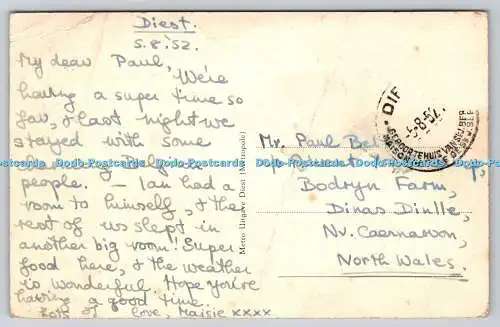 Diest.
5.8.'52.
My dear Paul,
We're
having a super time so
far, & last night we
stayed with some
people. – Ian had a
room to himself, & the
rest of us slept in
another big room! Super
food here, & the weather
is wonderful. Hope you're
having a good time.
love, Maisie xxxx
Metro Uitgave Diest (Metropole)
Mr. Paul
Bodryn Farm,
Dinas Dinlle,
Nr. Caernarvon,
North Wales.
-5-8-52
GEBOORTEHUIS VAN
Dodo-Postcards Dodo-Postcards Dodo-Postcards Dodo-Postcards